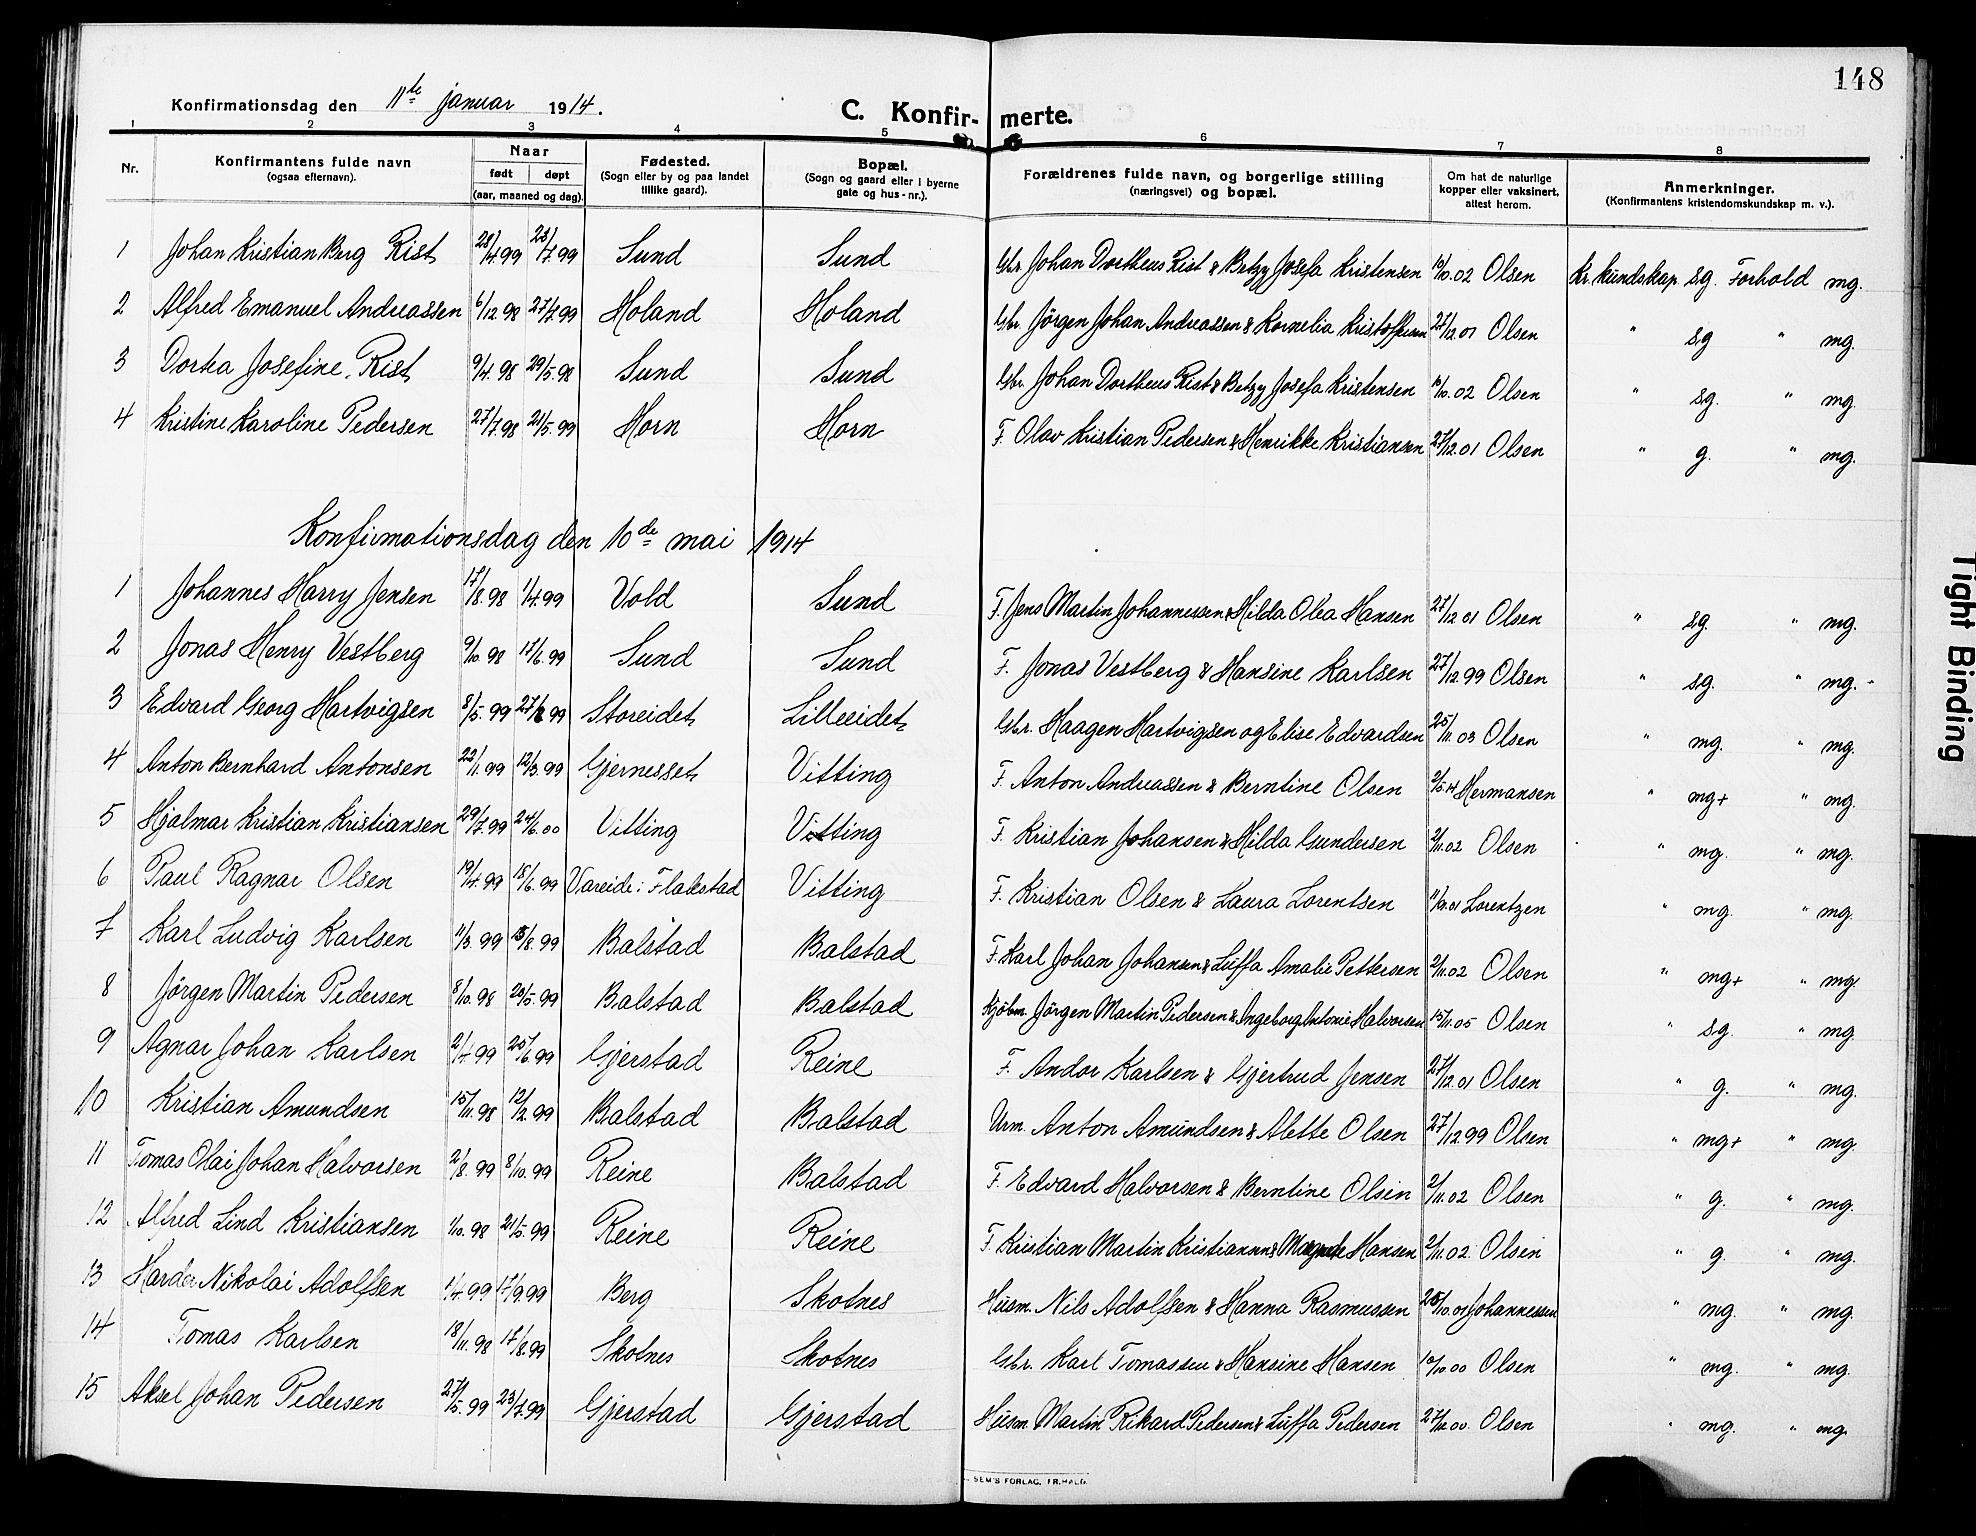 148
Konfirmationsdag den 11te januar 1914.
C. Konfir- merte.
1 2 3 4 5 6 7 8
Nr. Konfirmantens fulde navn (ogsaa efternavn). Naar født døpt (aar, maaned og dag). Fødested. (Sogn eller by og paa landet tillike gaard). Bopæl. (Sogn og gaard eller i byerne gate og hus-nr.). Forældrenes fulde navn, og borgerlige stilling (næringsvei) og bopæl. Om hat de naturlige kopper eller vaksinert, attest herom. Anmerkninger. (Konfirmantens kristendomskundskap m. v.).
1 Johan Kristian Berg Rist 28/4.99 23/7.99 Sund Sund Gbr. Johan Dortheus Rist & Betzy Josefa Kristensen 10/10.02 Olsen Kr. kundskap sg. Forhold mg.
2 Alfred Emanuel Andreassen 6/12.98 27/7.99 Holand Holand Gbr. Jörgen Johan Andreassen & Kornelia Kristoffersen 27/12.01 Olsen " sg " mg.
3 Dorka Josefine Rist 9/4.98 29/5.98 Sund Sund Gbr. Johan Dortheus Rist & Betzy Josefa Kristensen 10/10.02 Olsen " sg. " mg.
4 Kristine Karoline Pedersen 27/7.98 21/5.99 Horn Horn F. Olav Kristian Pedersen & Henrikke Kristiansen 27/12.01 Olsen " g. " mg.
Konfirmationsdag den 10de mai 1914
1 Johannes Harry Jensen 17/8.98 1/4.99 Vold Sund F. Jens Martin Johannessen & Hilda Olea Hansen 27/12 01 Olsen " sg. " mg.
2 Jonas Henry Vestberg 9/10.98 17/6.99 Sund Sund F. Jonas Vestberg & Hansine Karlsen 27/12.99 Olsen " sg. " mg.
3 Edvard Georg Hartvigsen 8/5.99 Storeidet Lilleeidet Gbr. Haagen Hartvigsen og Elise Edvardsen 25/11.03 Olsen " mg. " mg.
4 Anton Bernhard Antonsen 22/1.99 12/3.99 Gjernesset Vitting F. Anton Andreassen & Berntine Olsen 2/5.14 Hermansen " mg+ " mg.
5 Hjalmar Kristian Kristiansen 29/7.99 24/6.00 Vitting Vitting F. Kristian Johansen & Hilda Gundersen 2/11.02 Olsen " mg. " mg.
6 Paul Ragnar Olsen 19/4.99 18/6.99 Vareid i Flakstad Vitting F. Kristian Olsen & Laura Lorentsen 11/9.01 Lorentzen " mg. " mg.
7 Karl Ludvig Karlsen 11/3.99 Balstad Balstad F. Karl Johan Johansen & Luffa Amalie Pettersen 2/11.02 Olsen " mg+ " mg.
8 Jörgen Martin Pedersen 8/10.98 20/5.99 Balstad Balstad Kjöbm. Jörgen Martin Pedersen & Ingeborg Antonie Halvorsen 15/11.05 Olsen " sg. " mg.
9 Agnar Johan Karlsen 2/4.99 25/6.99 Gjerstad Reine F. Andor Karlsen & Gjertrud Jensen 27/12.01 Olsen " g. " mg.
10 Kristian Amundsen 15/11.98 12/2.99 Balstad Balstad Urm. Anton Amundsen & Alette Olsen 27/12.99 Olsen " mg+ " mg.
11 Tomas Olai Johan Halvorsen 2/8.99 8/10.99 Reine Balstad F. Edvard Halvorsen & Berntine Olsen 2/11.02 Olsen " g. " mg.
12 Alfred Lind Kristiansen 1/10.98 21/5.99 Reine Reine F. Kristian Martin Kristiansen & Hansen 2/11.02 Olsen " g. " mg.
13 Harder Nikolai Adolfsen 1/4.99 17/9.99 Berg Skotnes Husm. Nils Adolfsen & Hanna Rasmussen 25/10.01 Johannessen " mg. " mg.
14 Tomas Karlsen 18/11.98 17/8.99 Skotnes Skotnes Gbr. Karl Tomassen & Hansine Hansen 10/10.00 Olsen " mg. " mg.
15 Aksel Johan Pedersen 27/5.99 23/7.99 Gjerstad Gjerstad Husm. Martin Rikard Pedersen & Luffa Pedersen 27/12.00 Olsen " mg. " mg.
SEM'S FORLAG, FR.HALD.
Tight Binding